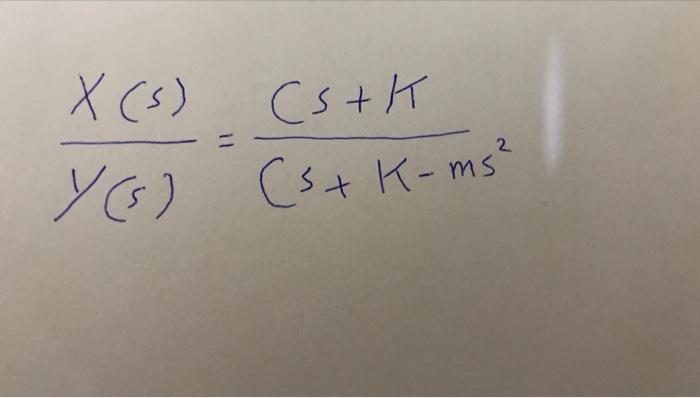 X(s) / Y(s) = (Cs+K) / (Cs+K-ms²)